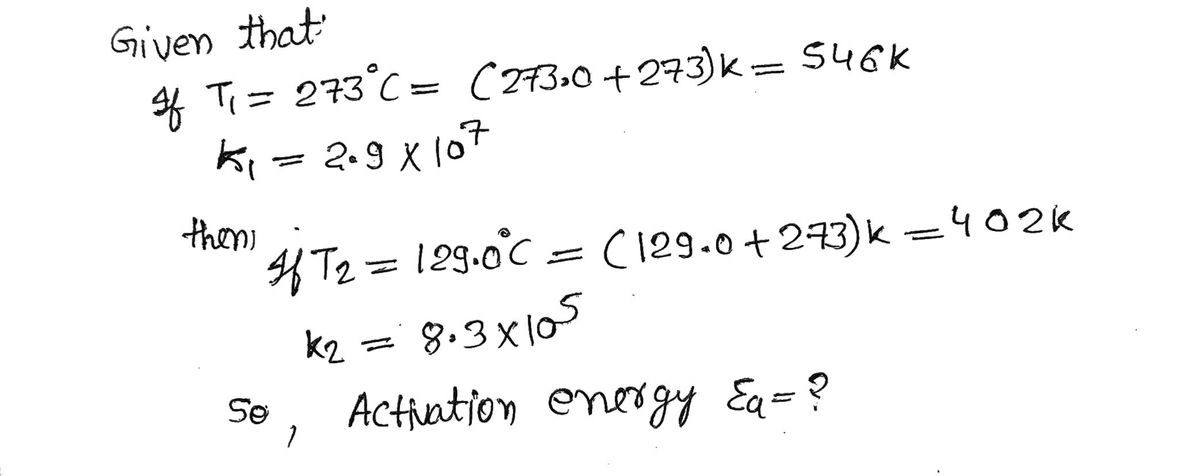 Given that
If T₁ = 273°C = (273.0 + 273)K = 546K
K₁ = 2.9 X 10⁷
then, if T₂ = 129.0°C = (129.0 + 273)K = 402K
K₂ = 8.3 X 10⁵
So, Activation energy Ea = ?